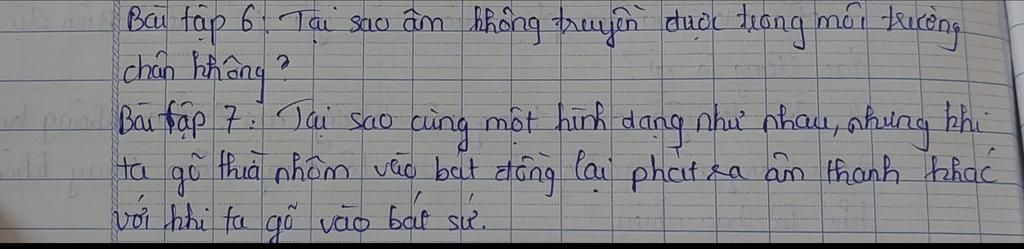 Bài tập 6: Tại sao âm không truyền được trong môi trường
chân không?
Bài tập 7: Tại sao cùng một hình dạng như nhau, nhưng khi
ta gõ thìa nhôm vào bát đồng lại phát ra âm thanh khác
với khi ta gõ vào bát sứ.